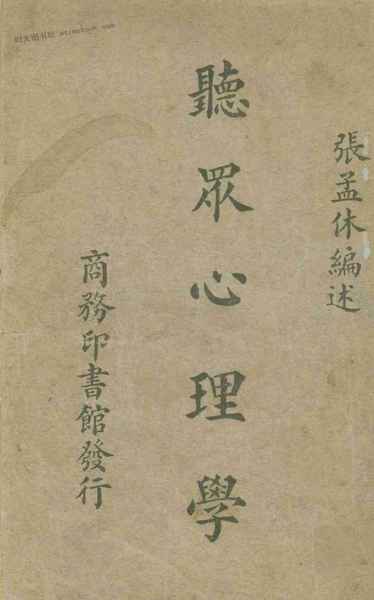 張孟休編述
聽眾心理學
商務印書館發行